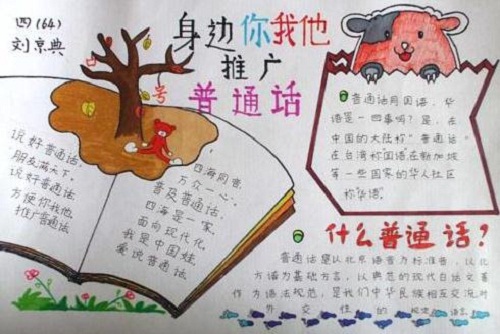 四(64)
刘京典
身边你我他
推广
普通话
号
说好普通话
朋友满天下
说好普通话
方便你我他
推广普通话
四海同音
万众一心
普及普通话
四海是一家
面向现代化
我是中国娃
爱说普通话
普通话同国语,华
语是一回事吗?是,在
中国的大陆称"普通话"
在台湾称国语"在新加坡
等一些国家的华人社区
称"华语"
什么普通话?
普通话是以北京语音为标准音,以北
方语为基础方言,以典范的现代白话文著
作为语法规范,是我们中华民族相互交况对
外交
性的
规范
语言